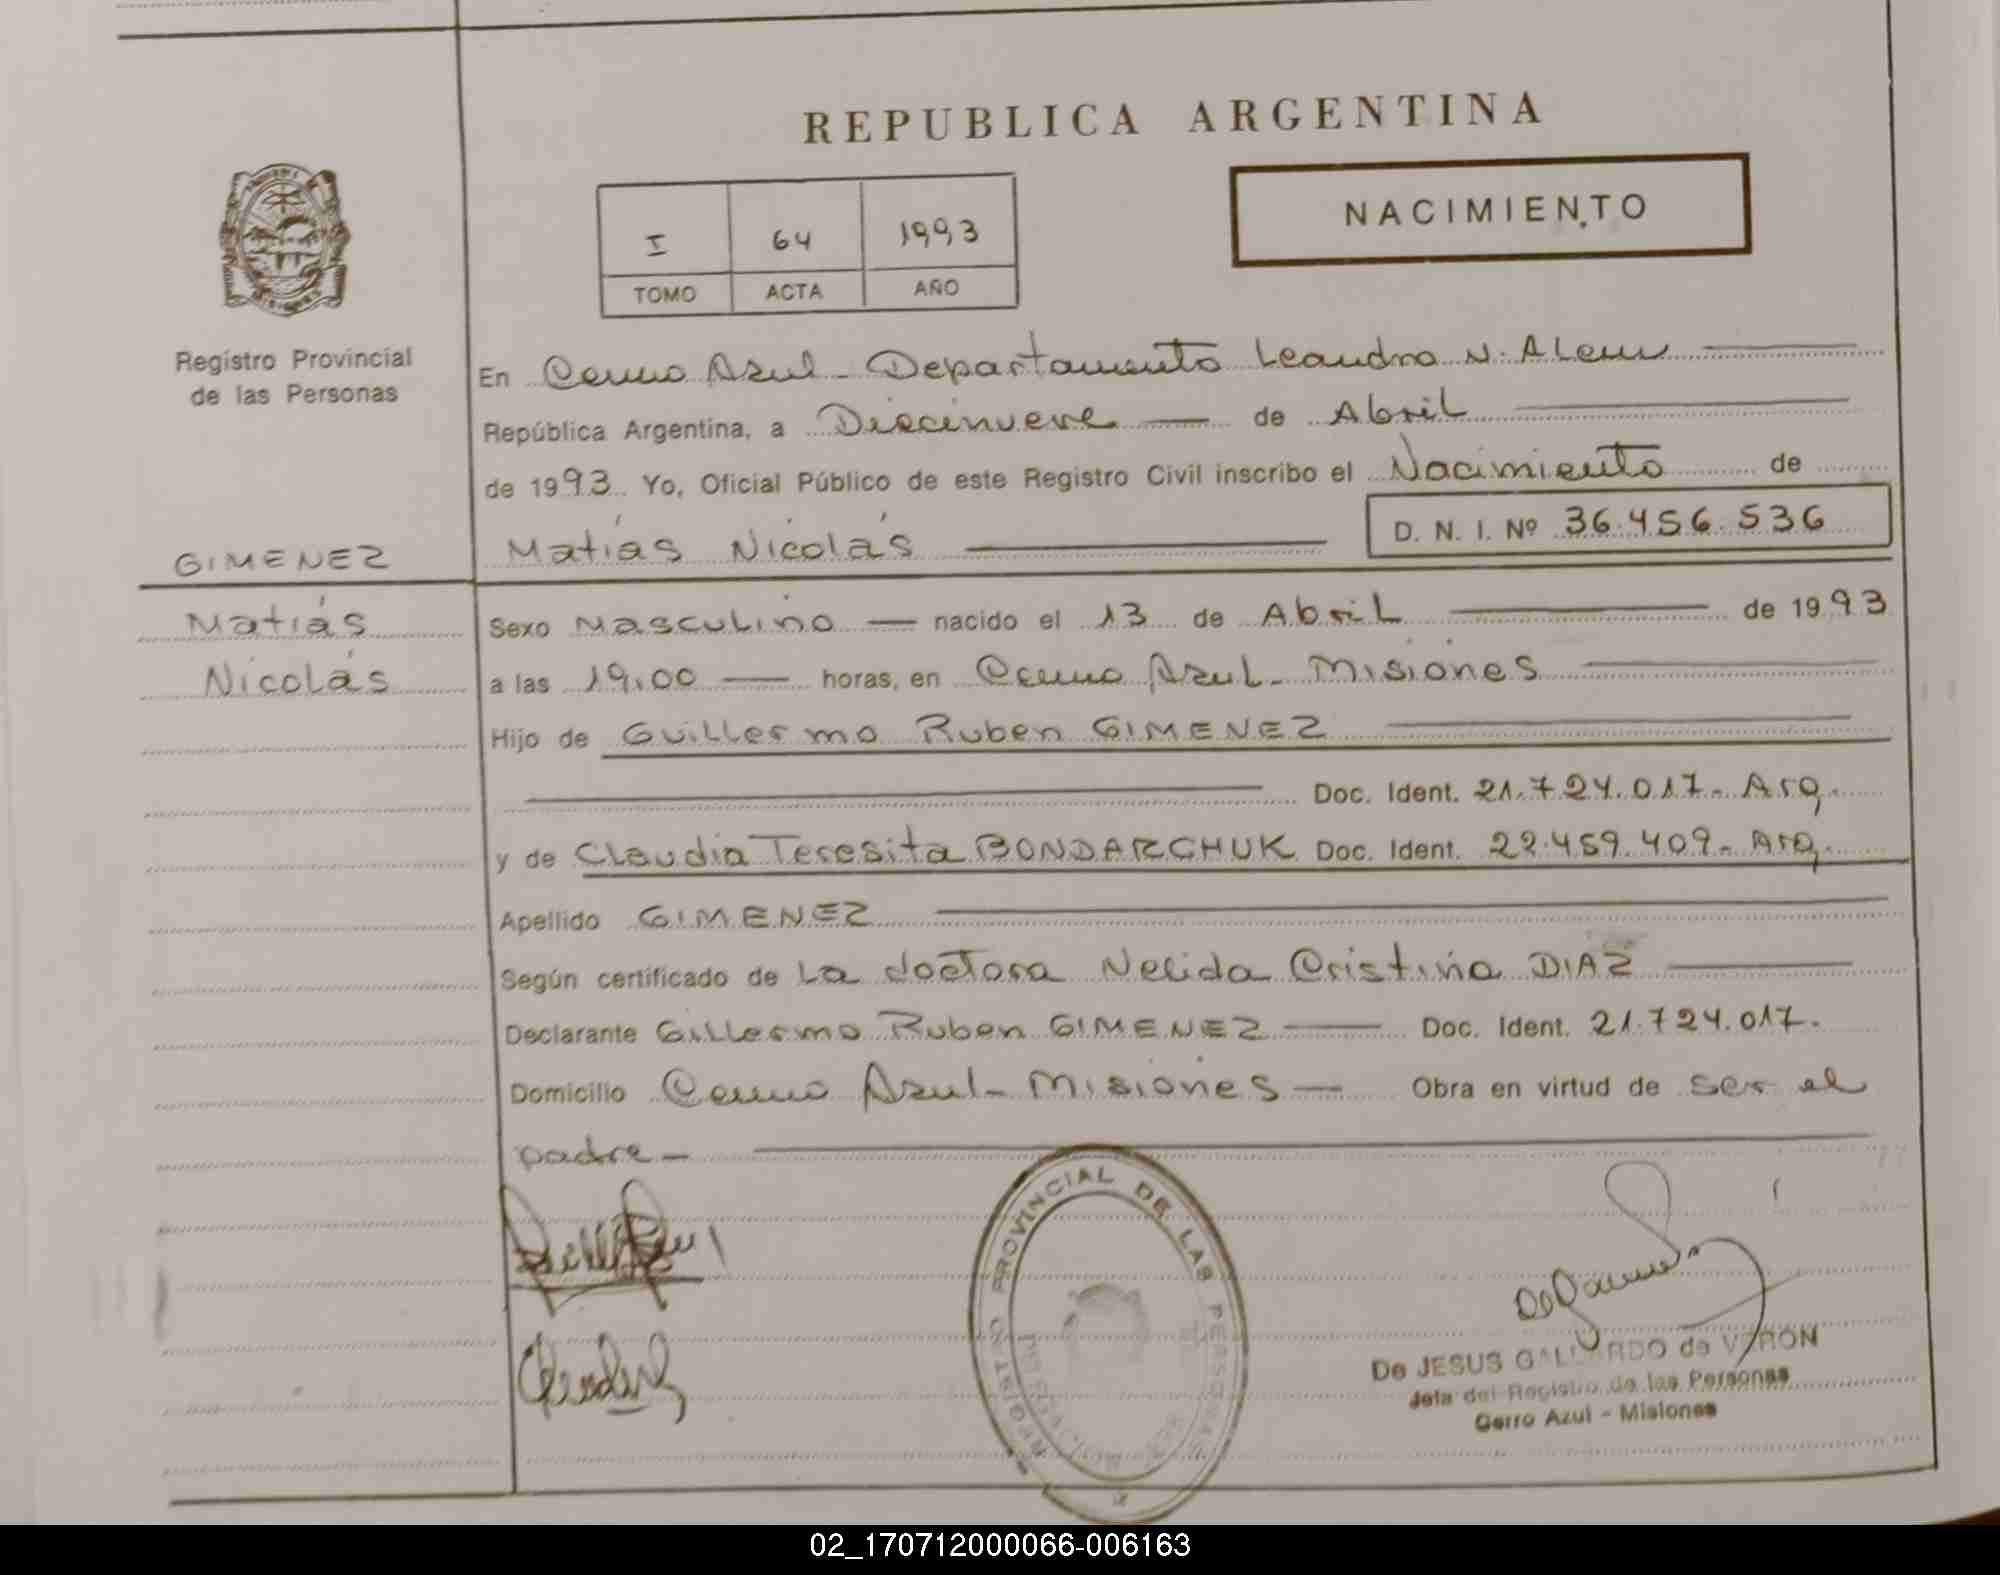 REPUBLICA ARGENTINA
I 64 1993
TOMO ACTA AÑO
NACIMIENTO
Registro Provincial
de las Personas
En Cerro Azul - Departamento Leandro N. Alem
República Argentina, a Diecinueve de Abril
de 1993. Yo, Oficial Público de este Registro Civil inscribo el Nacimiento de
Matías Nicolás D. N. I. Nº 36.456.536
GIMENEZ
Matías
Nicolás
Sexo Masculino nacido el 13 de Abril de 1993
a las 19.00 horas, en Cerro Azul - Misiones
Hijo de Guillermo Ruben GIMENEZ
Doc. Ident. 21.724.017 - Arg.
y de Claudia Teresita BONDARCHUK Doc. Ident. 22.459.409 - Arg.
Apellido GIMENEZ
Según certificado de La doctora Nelida Cristina DIAZ
Declarante Gillermo Ruben GIMENEZ Doc. Ident. 21.724.017.
Domicilio Cerro Azul - Misiones Obra en virtud de ser el
padre -
REGISTRO PROVINCIAL DE LAS PERSONAS
De JESUS GALLARDO de VERON
Jefa del Registro de las Personas
Cerro Azul - Misiones
02_170712000066-006163